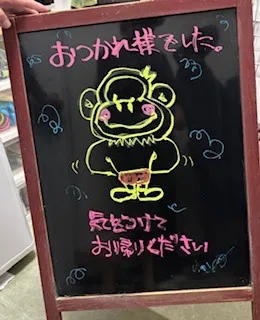 おつかれ様でした。
気をつけて
お帰りください